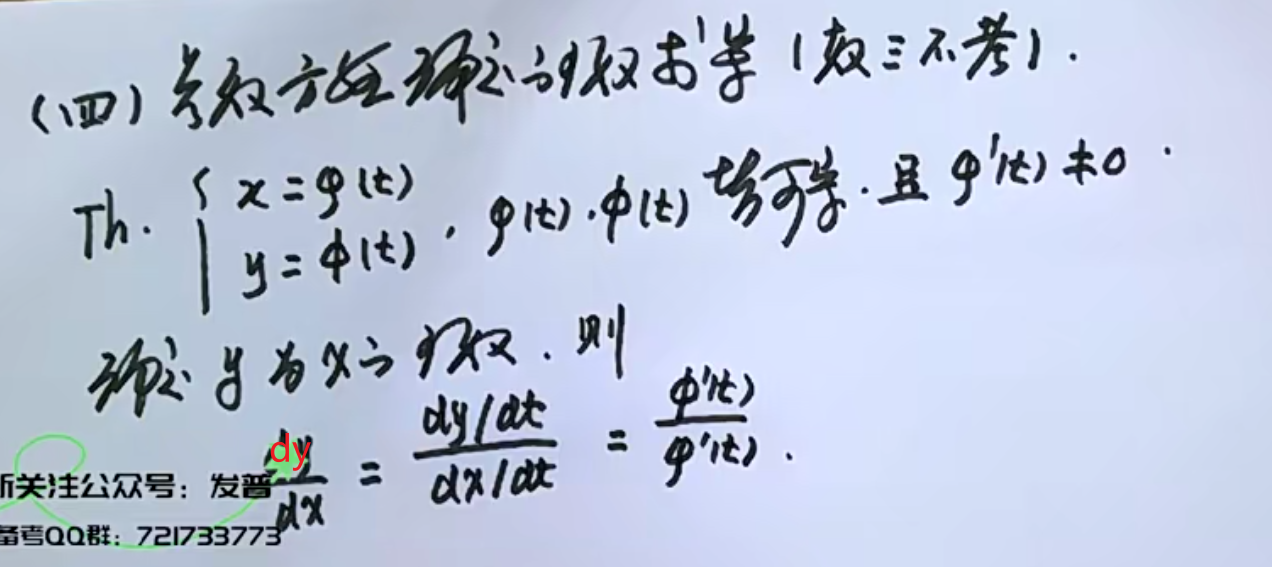 (四) 参数方程确定的函数求导 (数三不考).
Th. { x = φ(t)
y = ϕ(t) , φ(t). ϕ(t) 均可导. 且 φ'(t) ≠ 0 .
确定 y 为 x 的函数. 则
dy/dx = (dy/dt)/(dx/dt) = ϕ'(t)/φ'(t) .
dy
关注公众号：发普
备考QQ群：721733773